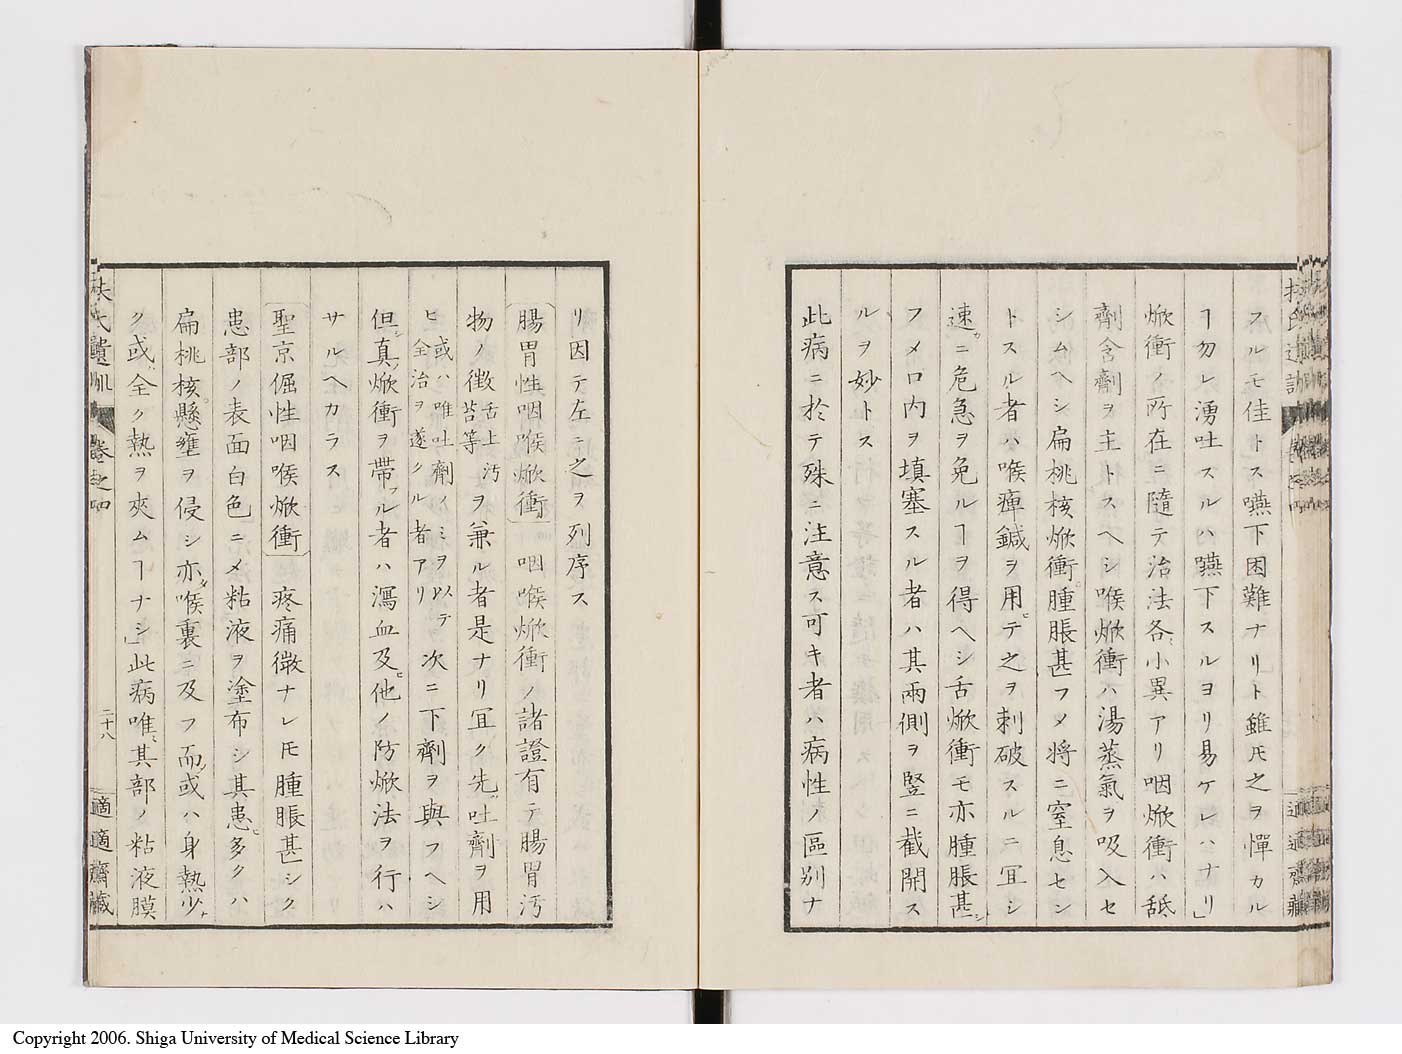 フルモ佳トス嚥下困難ナリト雖𪜈之ヲ憚カル
ヿ勿レ湧吐スルハ嚥下スルヨリ易ケレハナリ」
焮衝ノ所在ニ隨テ治法各小異アリ咽焮衝ハ舐
劑含劑ヲ主トスヘシ喉焮衝ハ湯蒸氣ヲ吸入セ
シムヘシ扁桃核焮衝腫脹甚フメ將ニ窒息セン
トスル者ハ喉痺鍼ヲ用テ之ヲ刺破スルニ冝シ
速カニ危急ヲ免ルヿヲ得ヘシ舌焮衝モ亦腫脹甚シ
フメ口内ヲ填塞スル者ハ其兩側ヲ竪ニ截開ス
ルヲ妙トス
此病ニ於テ殊ニ注意ス可キ者ハ病性ノ區別ナ
リ因テ左ニ之ヲ列序ス
腸胃性咽喉焮衝 咽喉焮衝ノ諸證有テ腸胃汚
物ノ徴舌上汚苔等ヲ兼ル者是ナリ冝ク先吐劑ヲ用
ヒ或ハ唯吐劑ノミヲ以テ全治ヲ遂クル者アリ次ニ下劑ヲ與フヘシ
但真焮衝ヲ帶フル者ハ瀉血及ヒ他ノ防焮法ヲ行ハ
サルヘカラス
聖京倔性咽喉焮衝 疼痛微ナレ𪜈腫脹甚シク
患部ノ表面白色ニメ粘液ヲ塗布シ其患多クハ
扁桃核懸壅ヲ侵シ亦喉裏ニ及フ而或ハ身熱少ナ
ク或全ク熱ヲ夾ムヿナシ」此病唯其部ノ粘液膜
扶氏遺訓
卷之四
二十八
適適齋藏